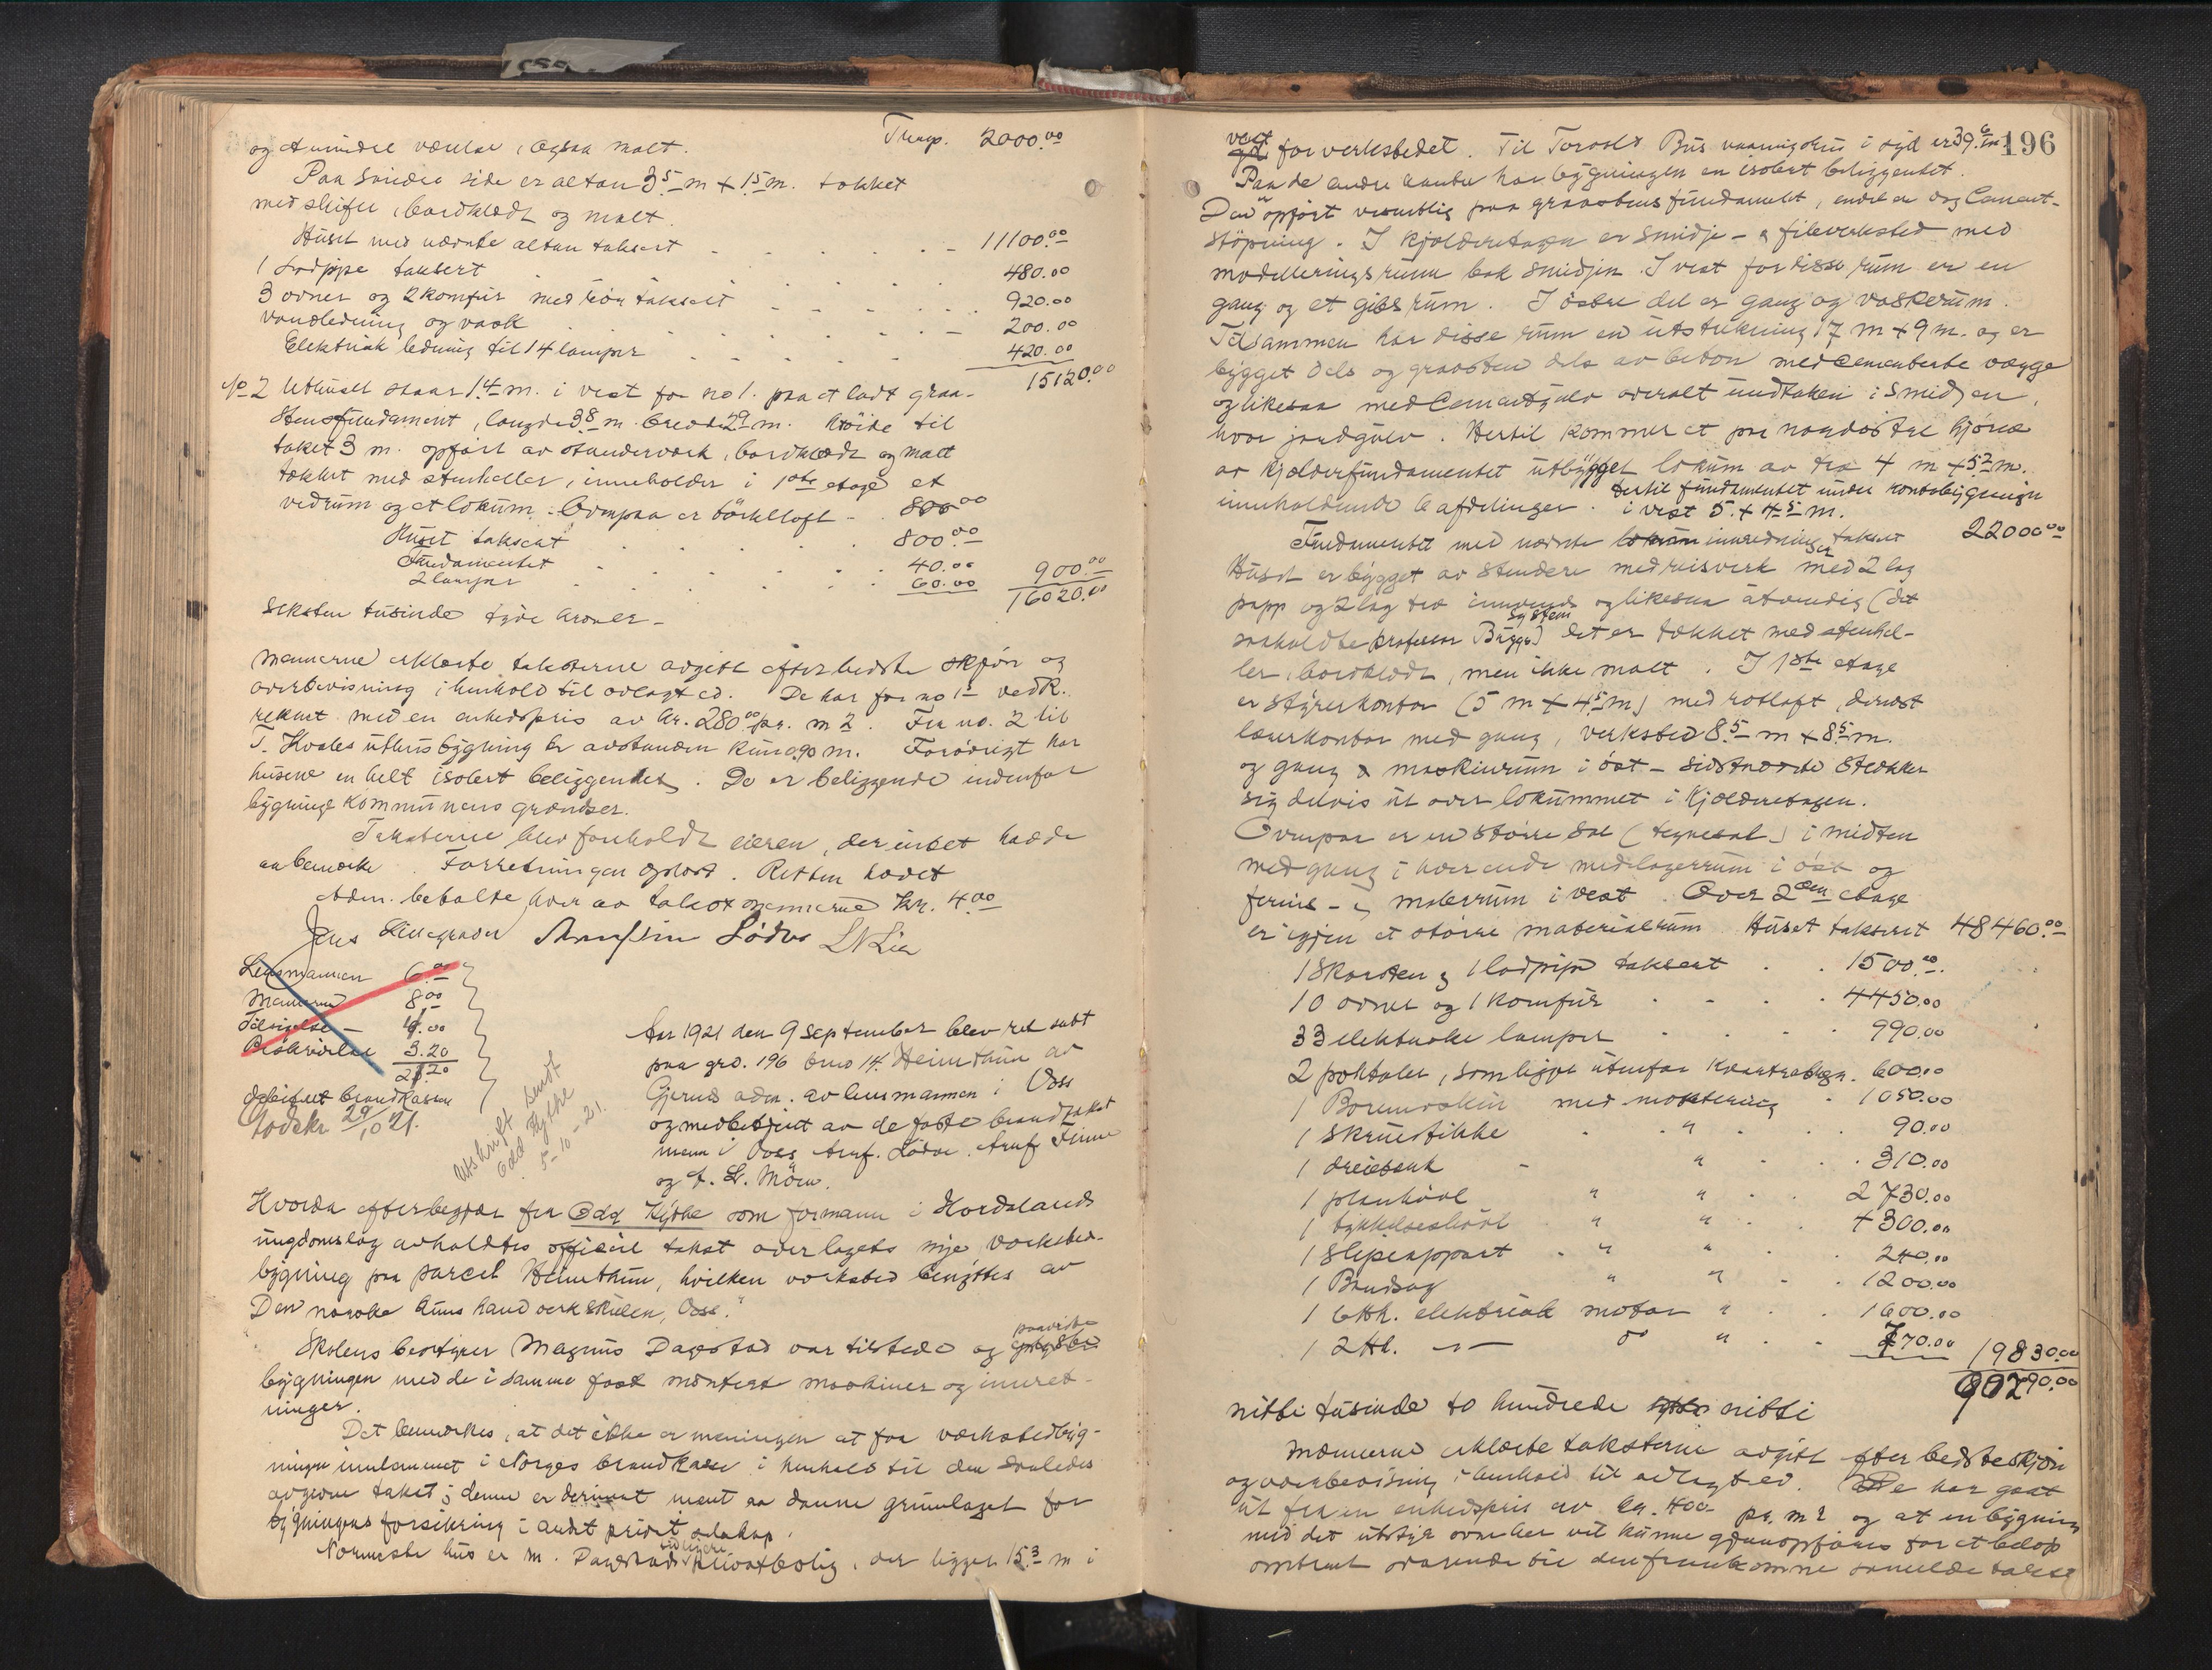 Transp. 2000.00
og et mindre værelse, ogsaa malt.
Paa søndre side er altan 3.5 m x 1.5 m. tækket
med skifer, bordklædt og malt.
Huset med nævnte altan taksert - 11100.00
1 Lodpipe taksert 480.00
3 ovner og 2 komfur med rør taksert 920.00
Vandledning og vask 200.00
Elektrisk ledning til 14 lamper 420.00
15120.00
No 2 Uthuset staar 1.4 m. i vest for no 1. paa et lødt graa-
stensfundament, længde 3.8 m. bredde 2.9 m. høide til
taket 3 m. opført av stenderverk, bordklædt og malt
tækket med stenheller, inneholder i 1ste etage et
vedrum og et lokum. Ovenpaa er
Huset taksert 800.00
Fundamentet 40.00
2 lamper 60.00 900.00
16020.00
seksten tusinde tyve kroner -
Mænnerne erklærte taksterne avgit efter bedste skjøn og
overbevisning i henhold til avlagt ed. De har for no 1 vedk.
regnet med en enhedspris av kr. 280.00 pr. m2. Fra no. 2 til
T. Kvales uthusbygning er avstanden kun 0.90 m. Forøvrigt har
husene en helt isolert beliggenhet. De er beliggende indenfor
bygningskommunens grændser.
Taksterne blev foreholdt eieren, der intet hadde
at bemerke. Forretningen opløst. Retten hævet
Adm. betalte hver av takstmænnerne kr. 4.00
Jens Lillegraven Arnfinn Lødve L N Lia
Lensmannen 6.00
Mænnerne 8.00
Tilsigelse - 4.00
Beskrivelse 3.20
21.20
Debitert brandkassen
Lodskr 29/10 21.
Utskrift sendt
Odd Kyrke
5-10-21.
Aar 1921 den 9 september blev ret sat
paa gno. 196 bno 14. Heimthun av
Gjernes adm. av lensmannen i Voss
og medbetjent av de faste brandtakst
menn i Voss Arnf. Lødve. Arnf Finne
og A. L. Mörw.
Hvorda efter begjær fra Odd Kyrke som formann i Hordalands
ungdomslag avholdtes officiel takst over lagets nye verksted-
bygning paa parcel Heimthun, hvilken verksted benyttes av
Den norske kunsthandverkskulen, Voss."
Skolens bestyrer Magnus Dagestad var tilstede og paaviste
bygningen med de i samme fast montert maskiner og innret-
ninger.
Det bemerkes, at det ikke er meningen at faa verkstedbyg-
ningen innlemmet i Norges brandkasse i henhold til den saaledes
avgivne takst; denne er derimot ment at danne grunnlaget for
bygningens forsikring i andet privat selskap.
Nærmeste hus er M. Dagestads tidligere privatbolig, der ligger 15.3 m i
196
vest for verkstedet. Til Torvald Bus vaaningshus i syd er 39.6 m
Paa de andre kanter har bygningen en isolert beliggenhet.
Den er opført vesentlig paa graastens fundament, endel er dog Cement-
støpning. I kjælderetagen er smidje- & filverksted med
modelleringsrum bak smidjen. I vest for disse rum er en
gang og et gibsrum. I østre del er gang og vaskerum.
Tilsammen har disse rum en utstrekning 17 m x 9 m. og er
bygget dels og graasten dels av beton med Cementerte vægge
og likesaa med Cementgulv overalt undtaken i smidjen,
hvor jordgulv. Hertil kommer et paa nordøstre hjørne
av kjælderfundamentet utbygget lokum av træ 4 m x 5.2 m.
inneholdende 6 afdelinger. Dertil fundamentet under kontorbygningen
i vest 5. x 4.5 m.
Fundamentet med nævnte innredninger taksert 22000.00
Huset er bygget av stendere med reisverk med 2 lag
papp og 2 lag træ innvendig og likesaa utvendig (det
saakaldte professor Bugges system) det er tækket med stenhel-
ler, bordklædt, men ikke malt. I 1ste etage
er styrerkontor (5 m x 4.5 m) med rotloft, dernæst
lærerkontor med gang, verksted 8.5 m x 8.5 m.
og gang & maskinrum i øst - sidstnævnte strækker
sig delvis ut over lokummet i kjælderetagen.
Ovenpaa er en større sal (tegnesal) i midten
med gang i hver ende med lagerrum i øst og
fernis- & malerrum i vest. Over 2den etage
er igjen et større materialrum Huset taksert 48460.00
1 Skorsten & 1 lodpipe taksert 1500.00
10 ovner og 1 komfur 4450.00
33 elektriske lamper 990.00
2 poktaler, som ligge utenfor 600.00
1 Boremaskin med montering 1050.00
1 Skruestikke " 90.00
1 dreiebenk " 310.00
1 planhövl " " 2730.00
1 tykkelseshövl " " 4300.00
1 Slipeapparat " " 240.00
1 Bandsag " " 1200.00
1 6 Hk. elektrisk motor " 1600.00
1 2 Hk. - " - do " 770.00 19830.00
90290.00
nitti tusinde to hundrede nitti
Mænnerne erklærte taksterne avgit efter bedste skjøn
og overbevisning i henhold til avlagt ed. De har gaat
ut fra en enhedspris av kr. 400 pr. m2 og at en bygning
med det utstyr som her vil kunne gjenopføres for et beløp
omtrent svarende til den fremkomne samlede takst